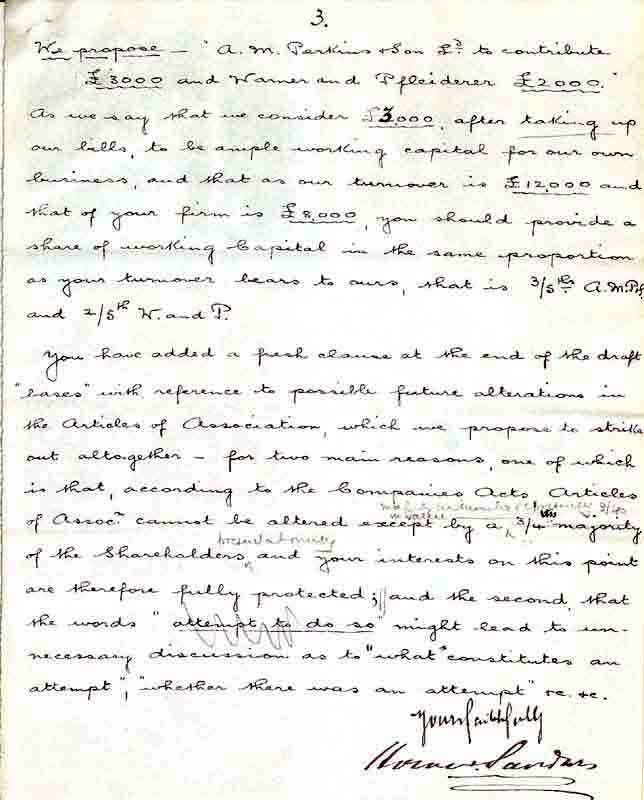 3.
We propose – "A. M. Perkins & Son Ld. to contribute
£3000 and Warner and Pfleiderer £2000."
As we say that we consider £3,000, after taking up
our bills, to be ample working capital for our own
business, and that as our turnover is £12,000 and
that of your firm is £8,000, you should provide a
share of working Capital in the same proportion
as your turnover bears to ours, that is 3/5ths A.M.P.S
and 2/5th W. and P.
You have added a fresh clause at the end of the draft
"bases" with reference to possible future alterations in
the Articles of Association, which we propose to strike
out altogether – for two main reasons, one of which
is that, according to the Companies Acts, Articles
of Assocn. cannot be altered except by a 3/4ths majority
of the Shareholders, and your interests on this point
are therefore fully protected; and the second, that
the words "attempt to do so" might lead to un-
necessary discussion as to "what" constitutes an
attempt", "whether there was an attempt" &c. &c.
Yours faithfully